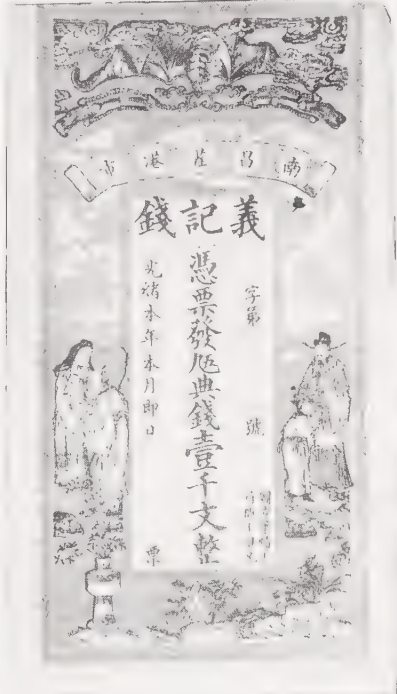 南昌港市
義記錢
字第 號
憑票發典錢壹千文整
光緒本年本月即日 票